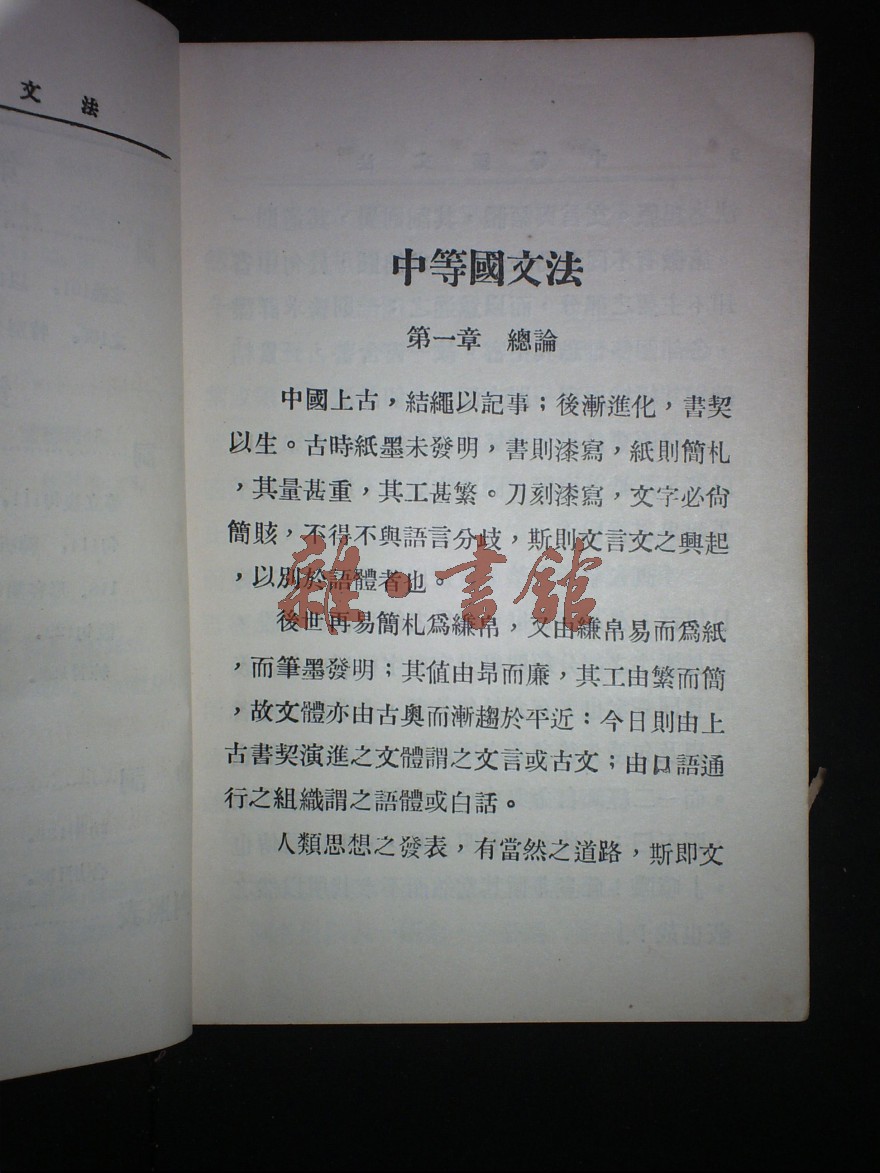 文法
中等國文法
第一章 總論
中國上古，結繩以記事；後漸進化，書契
以生。古時紙墨未發明，書則漆寫，紙則簡札
，其量甚重，其工甚繁。刀刻漆寫，文字必尙
簡賅，不得不與語言分歧，斯則文言文之興起
，以別於語體者也。
雜·書館
後世再易簡札爲縑帛，又由縑帛易而爲紙
，而筆墨發明；其值由昂而廉，其工由繁而簡
，故文體亦由古奧而漸趨於平近：今日則由上
古書契演進之文體謂之文言或古文；由口語通
行之組織謂之語體或白話。
人類思想之發表，有當然之道路，斯即文